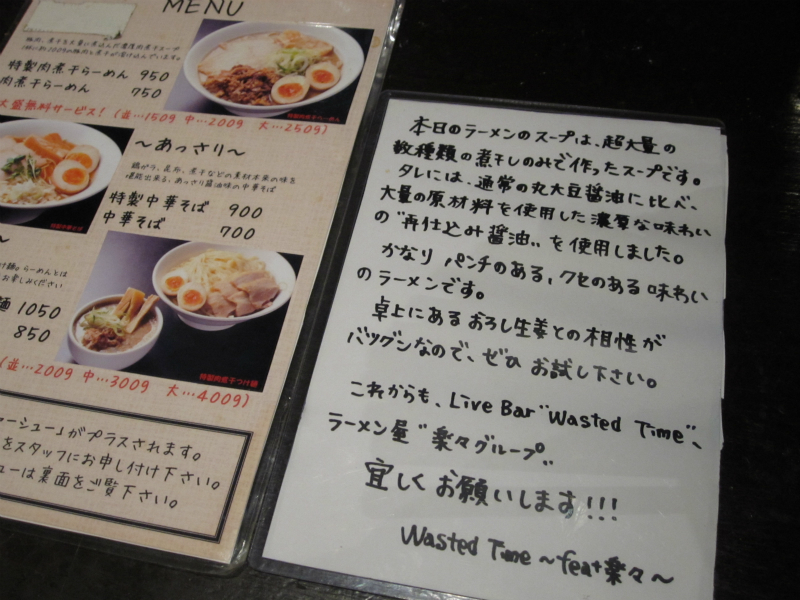 MENU
特製肉煮干らーめん 950
肉煮干らーめん 750
大盛無料サービス! (並…150g 中…200g 大…250g)
～あっさり～
鶏がら、昆布、煮干などの素材本来の味を
堪能出来る、あっさり醤油味の中華そば
特製中華そば 900
中華そば 700
1050
850
(並…200g 中…300g 大…400g)
ャーシュー」がプラスされます。
をスタッフにお申し付け下さい。
ューは裏面をご覧下さい。
特製肉煮干つけ麺
本日のラーメンのスープは、超大量の
数種類の煮干しのみで作ったスープです。
タレには、通常の丸大豆醤油に比べ、
大量の原材料を使用した濃厚な味わい
の〝再仕込み醤油〟を使用しました。
かなり パンチのある、クセのある 味わい
のラーメンです。
卓上にあるおろし生姜との相性が
バツグンなので、ぜひ お試し下さい。
これからも、Live Bar〝Wasted Time〟、
ラーメン屋〝楽々グループ〟
宜しくお願いします!!!
Wasted Time ～feat楽々～